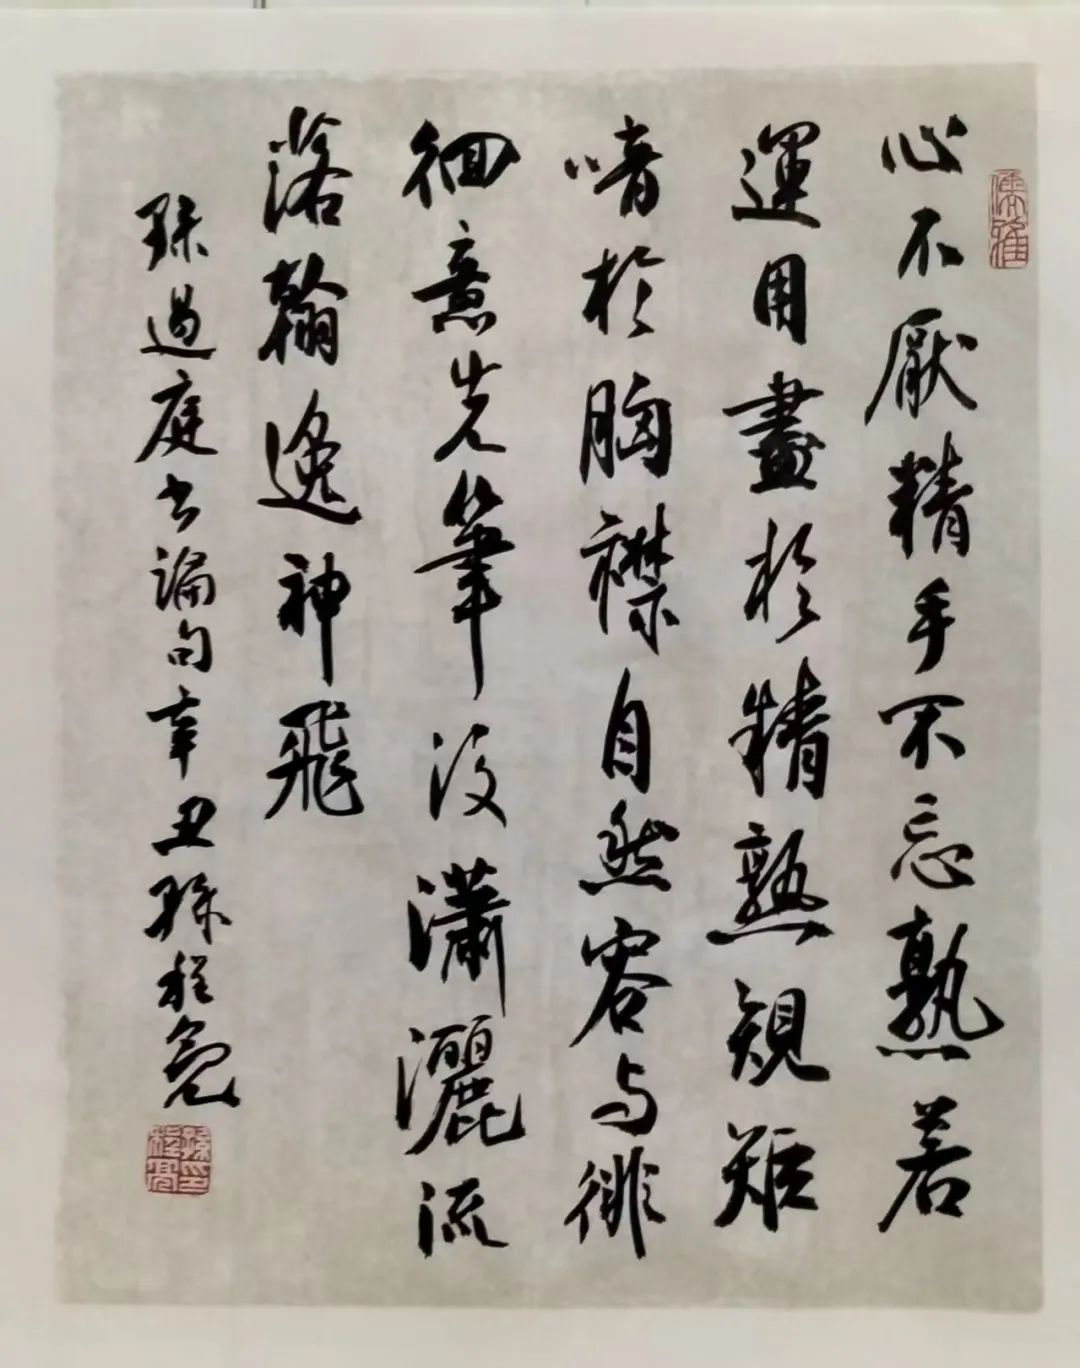 儒雅
心不厭精手不忘熟若
運用盡於精熟規矩
喑於胸襟自然容与徘
徊意先筆後瀟灑流
落翰逸神飛
孫過庭书論句辛丑孫程亮